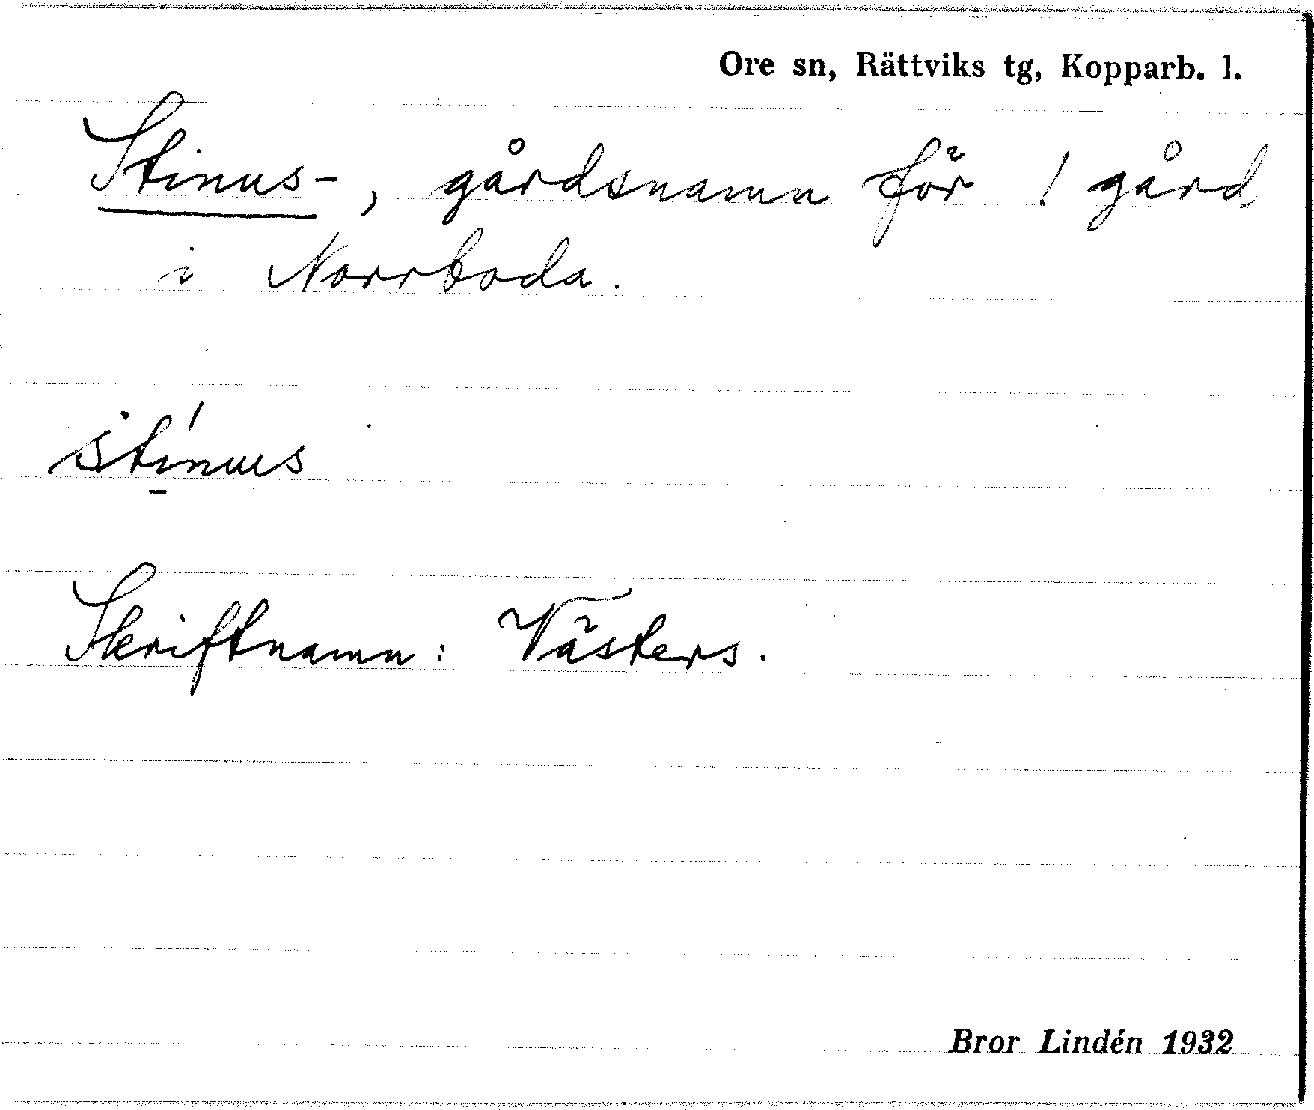 Ore sn, Rättviks tg, Kopparb. l.
Stinus-, gårdsnamn för 1 gård
i Norrboda.
stínus
Skriftnamn: Västers.
Bror Lindén 1932